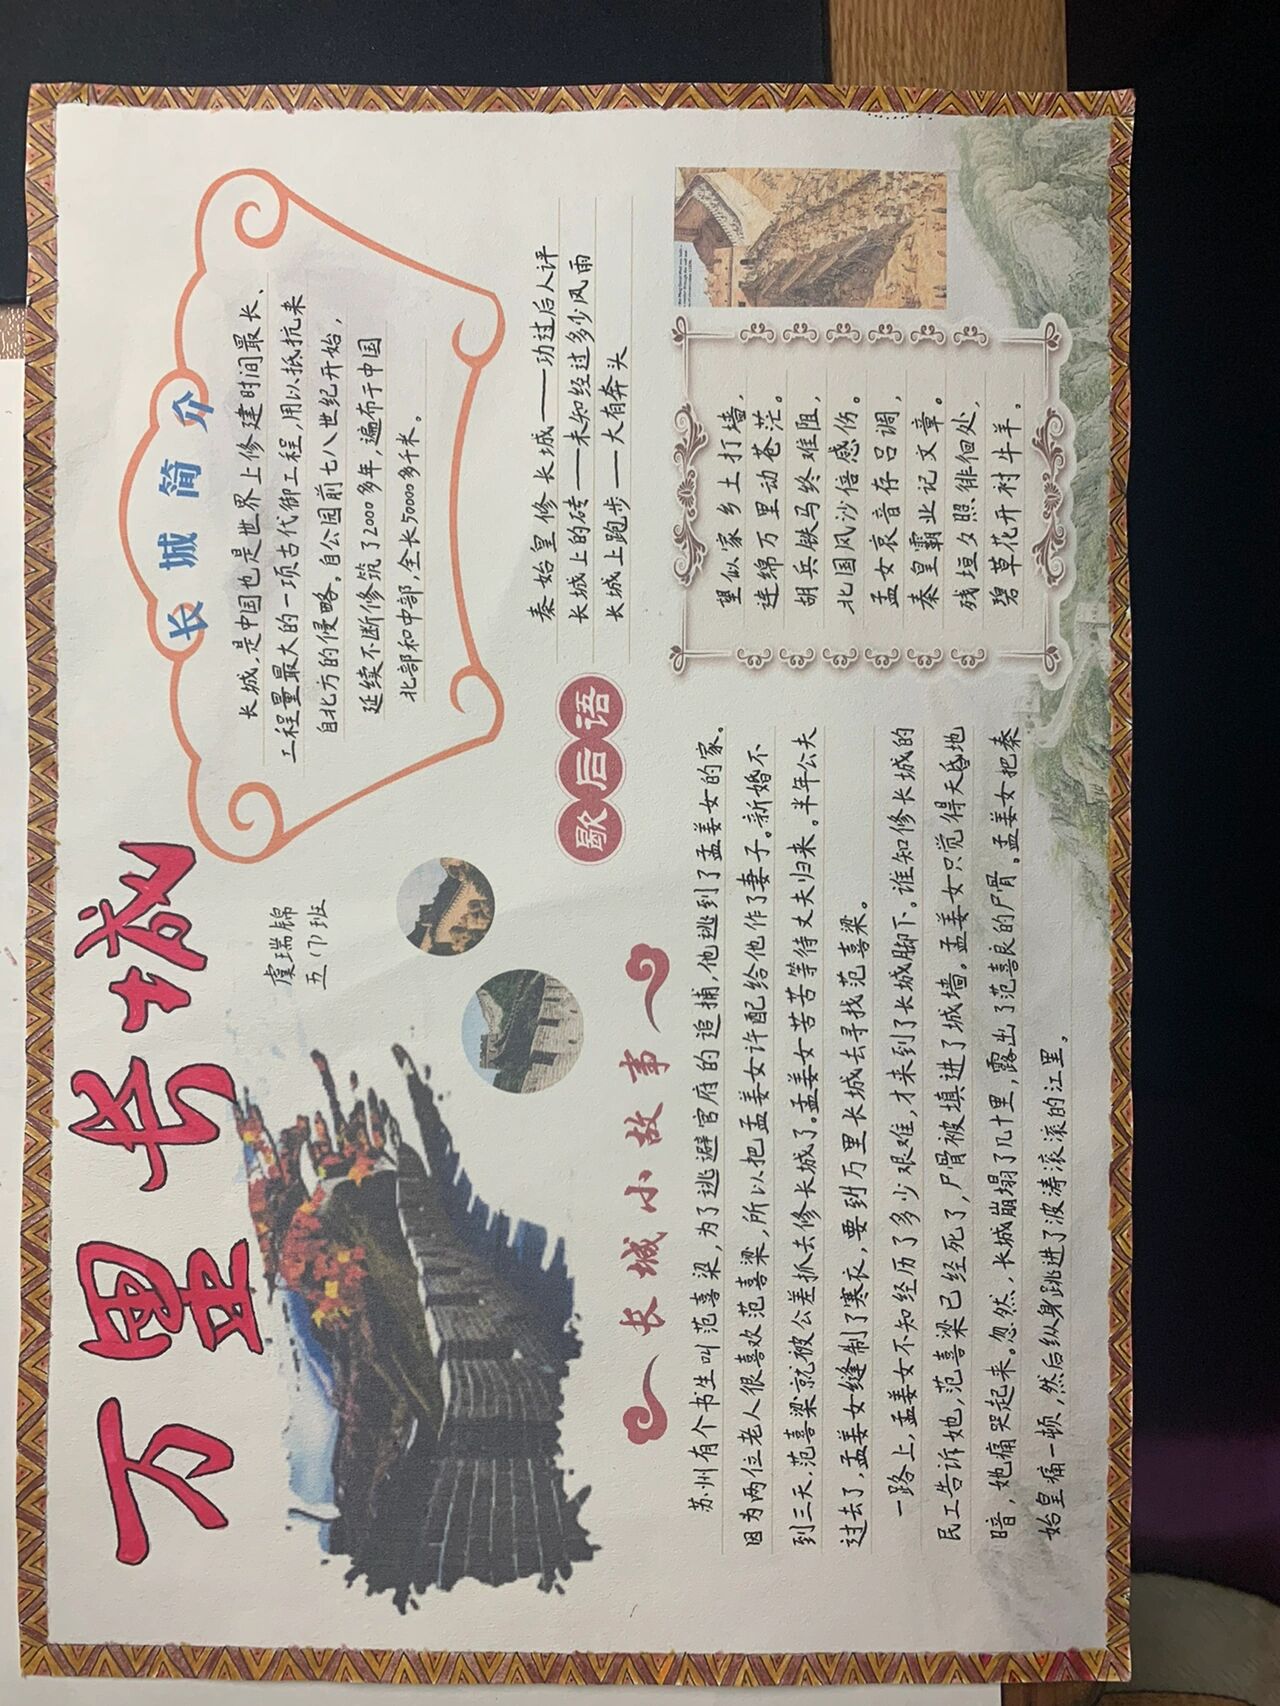 万里长城
虞瑞锦
五(1)班
长城简介
长城,是中国也是世界上修建时间最长、
工程量最大的一项古代御工程,用以抵抗来
自北方的侵略。自公园前七八世纪开始,
延续不断修筑了2000多年,遍布于中国
北部和中部,全长50000多千米。
歇后语
秦始皇修长城——功过后人评
长城上的砖——未知经过多少风雨
长城上跑步——大有奔头
长城小故事
苏州有个书生叫范喜梁,为了逃避官府的追捕,他逃到了孟姜女的家。
因为两位老人很喜欢范喜梁,所以把孟姜女许配给他作了妻子。新婚不
到三天,范喜梁就被公差抓去修长城了。孟姜女苦苦等待丈夫归来。半年公夫
过去了,孟姜女缝制了寒衣,要到万里长城去寻找范喜梁。
一路上,孟姜女不知经历了多少艰难,才来到了长城脚下。谁知修长城的
民工告诉她,范喜梁已经死了,尸骨被填进了城墙。孟姜女只觉得天昏地
暗,她痛哭起来。忽然,长城崩塌了几十里,露出了范喜良的尸骨。孟姜女把秦
始皇痛一顿,然后纵身跳进了波涛滚滚的江里。
望似家乡土打墙,
连绵万里动苍茫。
胡兵铁马终难阻,
北国风沙倍感伤。
孟女哀音存吕调,
秦皇霸业记文章。
残垣夕照徘徊处,
碧草花开衬牛羊。